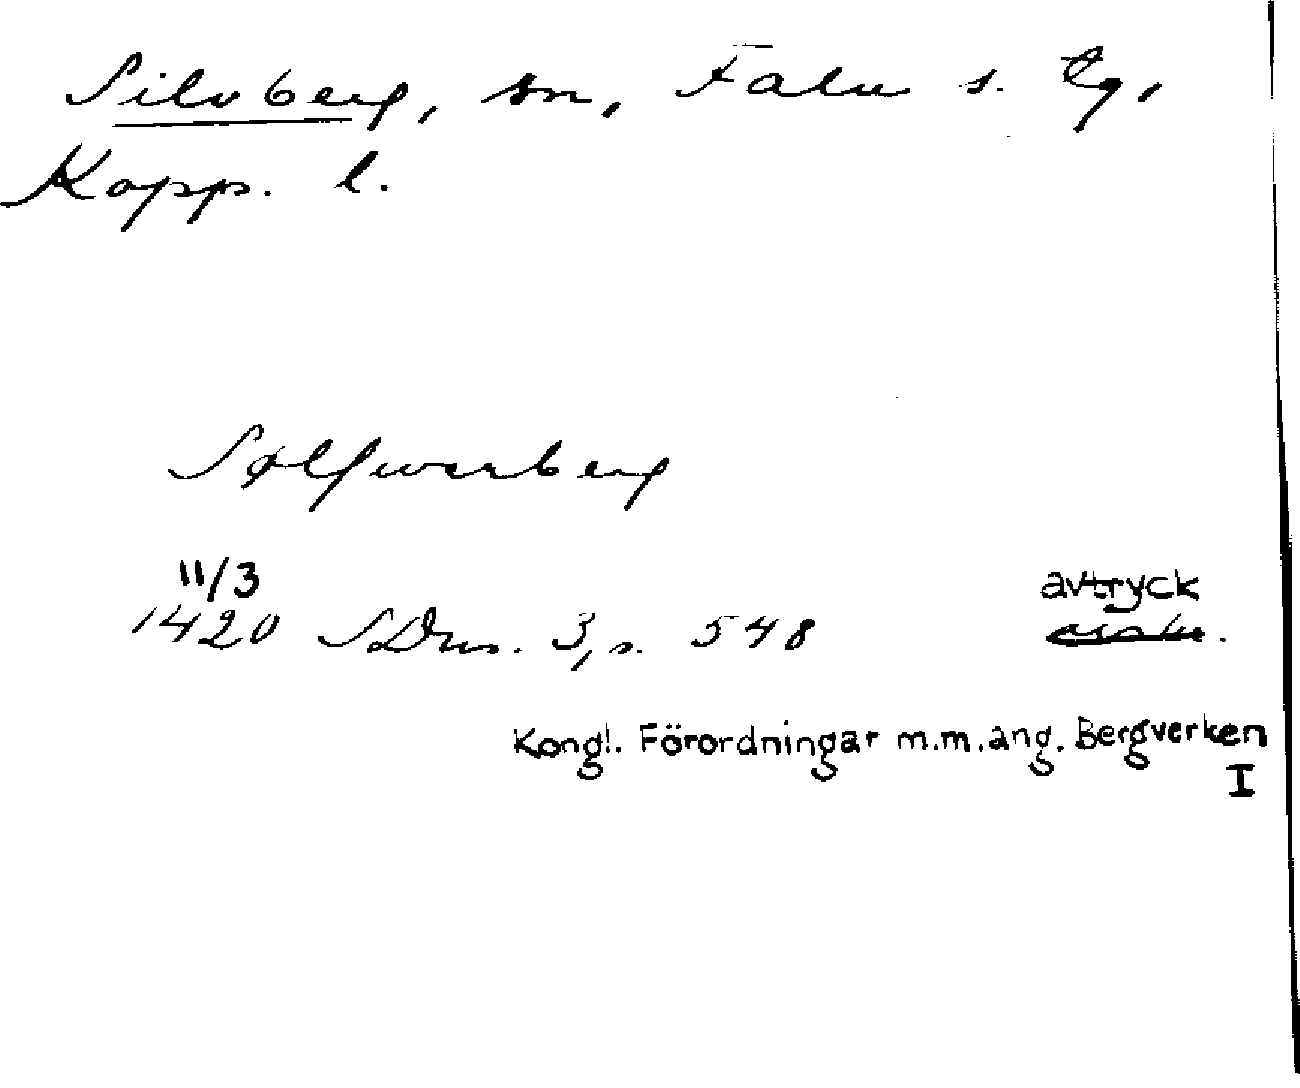 Silvberg, sn, Falu s. tg,
Kopp. l.
Sølfwerberg
11/3
1420 SDns. 3, s. 548
avtryck
Kongl. Förordningar m.m. ang. Bergverken
I